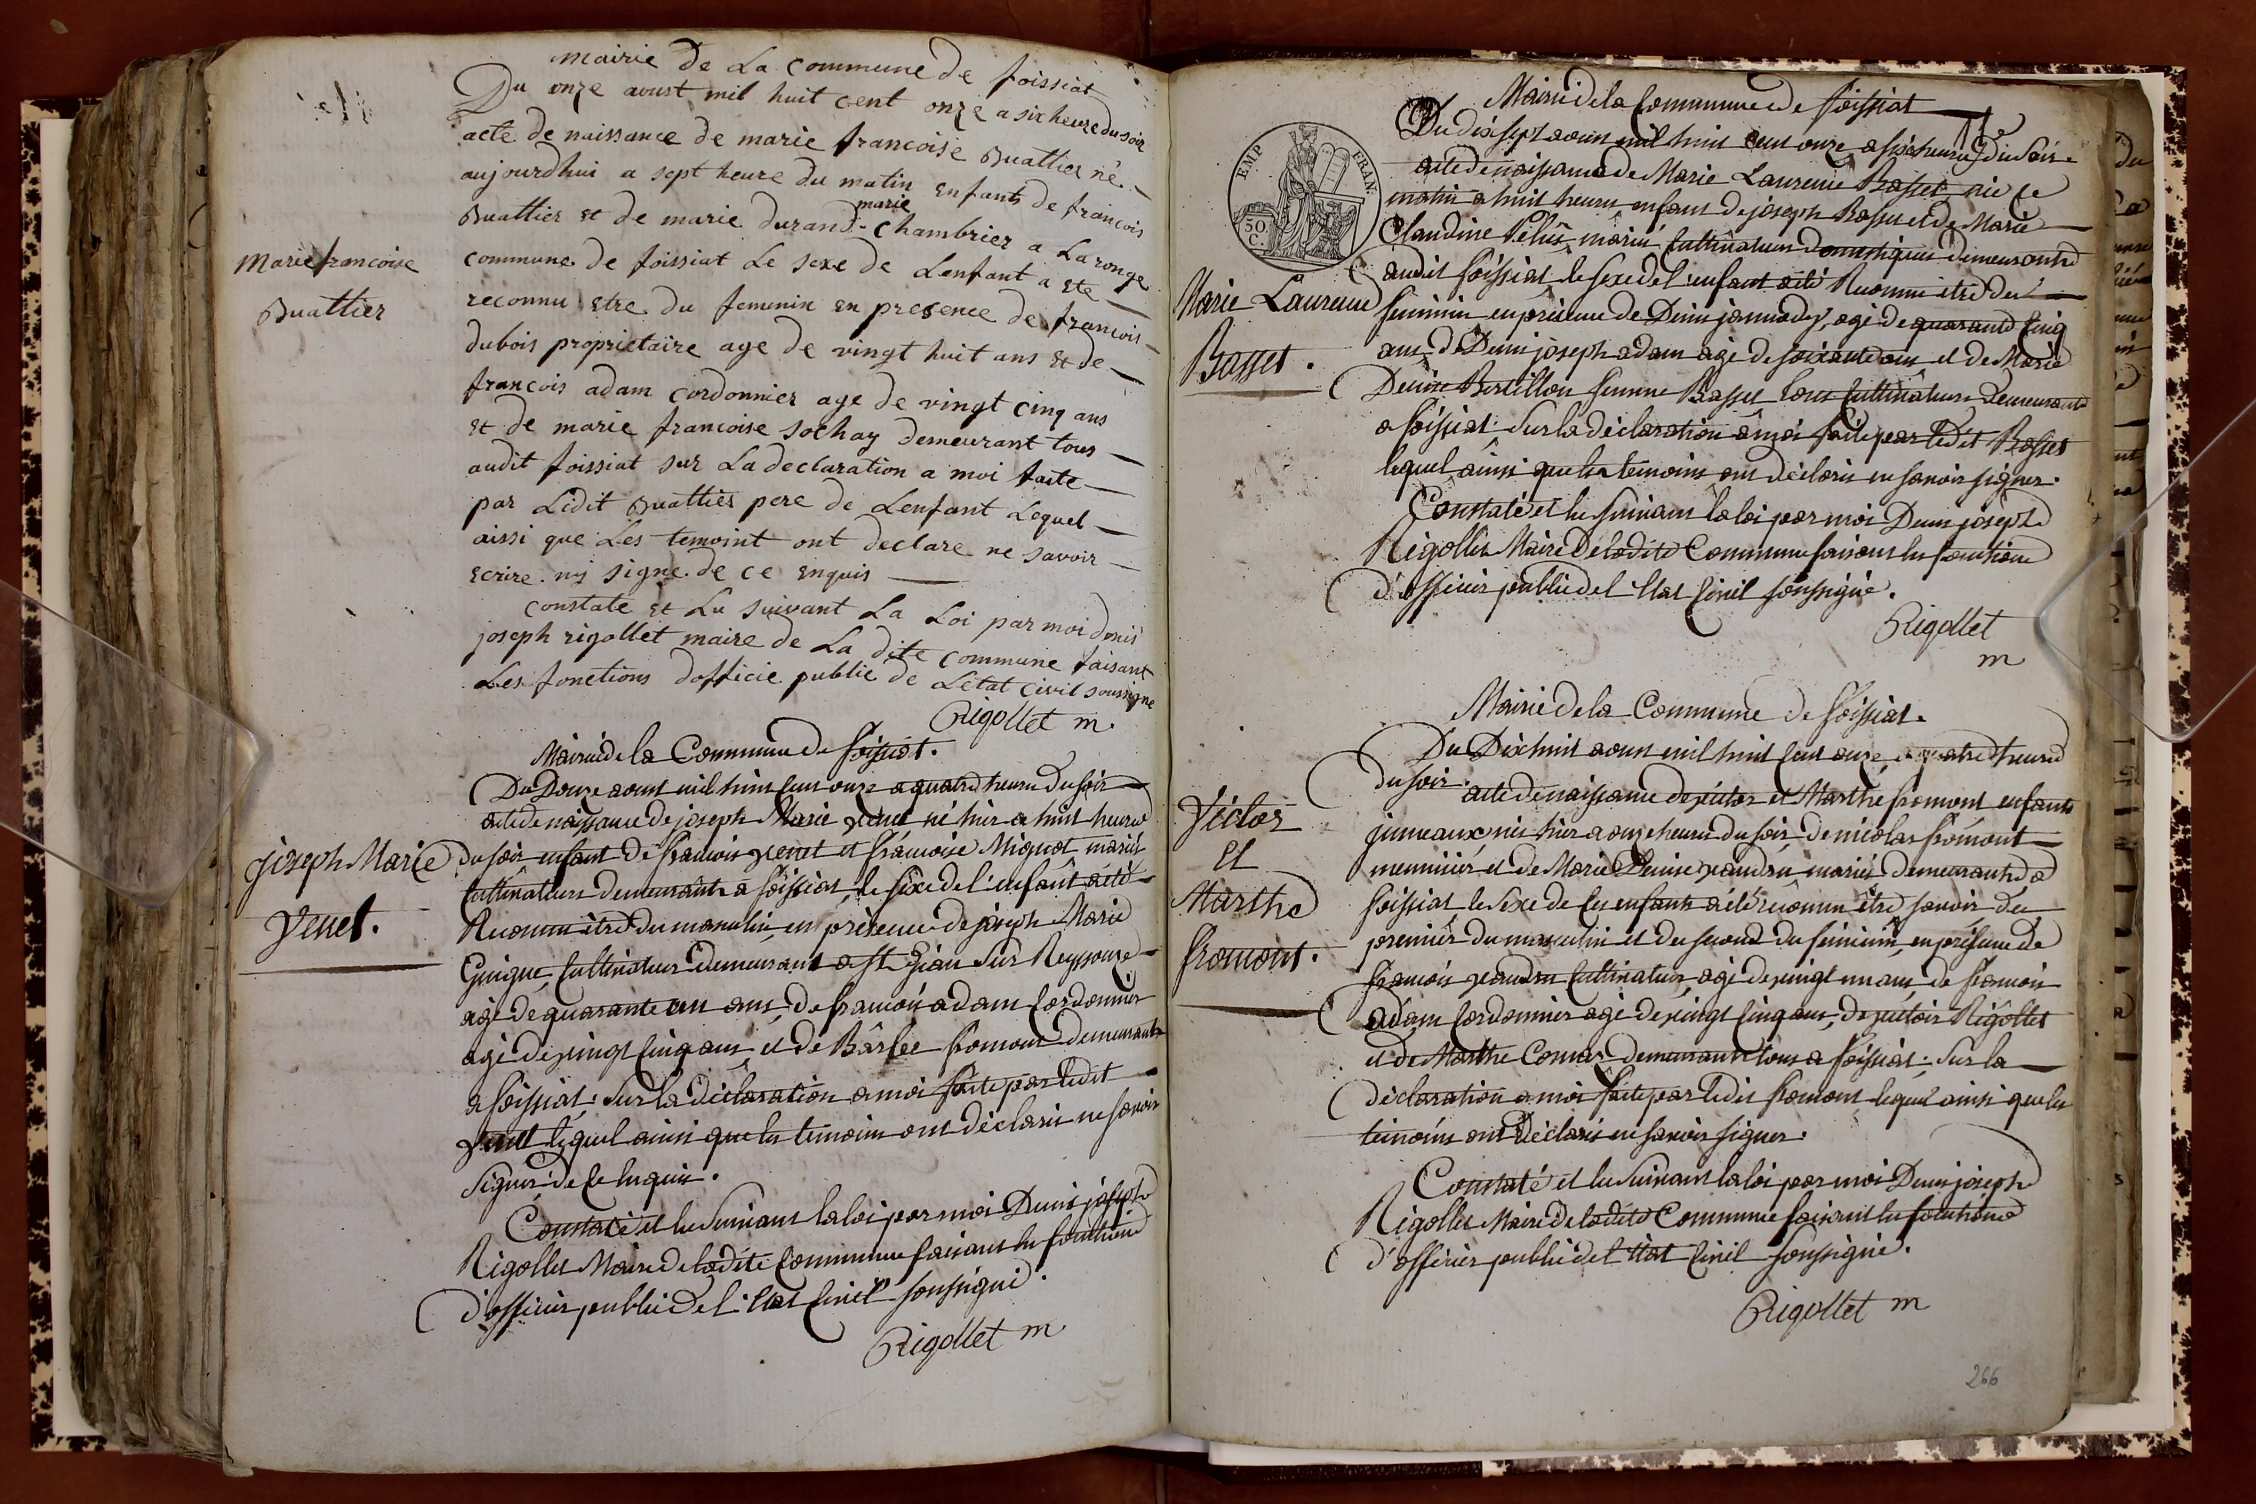 mairie de La commune de foissiat
Du onze avust mil huit cent onze a six heure du soir
acte de naissance de marie francoise Buattier né
aujourdhui a sept heure du matin enfants de francois
Buattier et de marie durand marie chambrier a La ronge
commune de foissiat Le sexe de Lenfant a ete
reconnu etre du femenin en presence de francois
dubois proprietaire age de vingt huit ans et de
francois adam cordonnier age de vingt cinq ans
et de marie francoise sochay demeurant tous
audit foissiat sur La declaration a moi faite
par Ledit Buattier pere de Lenfant Lequel
aissi que Les temoint ont declare ne savoir
ecrire ny signe de ce enquis
constate et Lu suivant La Loi par moi denis
joseph rigollet maire de La dite commune faisant
Les fonctions dofficie public de Letat civil soussigne
Rigollet m.
Marie francoise
Buattier
Mairie de la Commune de foissiat.
Du Douze aout mil huit cent onze a quatre heures du soir
acte de naissance de joseph Marie yenet né hier a huit heures
du soir enfant de francois yenet et francoise Miquet mariés
cultivateurs demeurants a foissiat, le sexe de l'enfant a été
Reconnu être du masculin, en présence de joseph Marie
Guigue, cultivateur demeurant a st jean sur Reyssouze
agé de quarante un ans, de francois adam cordonnier
agé de vingt cinq ans et de fromont demeurants
a foissiat; sur la déclaration a moi faite par ledit
yenet lequel ainsi que les temoins ont déclarés ne savoir
signer de ce enquis.
Constaté et lu suivant la loi par moi Denis joseph
Rigollet Maire de ladite Commune faisant les fonctions
d'officier public de l'état civil soussigné.
Rigollet m
joseph Marie
yenet.
EMP. FRAN.
50 C.
Mairie de la Commune de foissiat
Du dix sept aout mil huit cent onze a six heures du soir
acte de naissance de Marie Laurence Basset née ce
matin a huit heures enfant de joseph Basset et de Marie
Claudine Pélus mariés cultivateurs domestiques demeurants
audit foissiat, le sexe de l'enfant a été Reconnu être du
feminin en présence de Denis jannody, agé de quarante cinq
ans, de Denis joseph adam agé de soixante ans et de Marie
Denise Bertillon femme Basset tous cultivateurs demeurants
a foissiat. Sur la déclaration a moi faite par ledit Basset
lequel ainsi que les temoins ont déclarés ne savoir signer.
Constaté et lu suivant la loi par moi Denis joseph
Rigollet Maire de ladite Commune faisant les fonctions
d'officier public de l'état civil soussigné.
Rigollet
m
Marie Laurence
Basset.
Mairie de la Commune de foissiat.
Du Dix huit aout mil huit cent onze, a quatre heures
du soir. acte de naissance de victor et Marthe fromont enfants
jumeaux nés hier a onze heures du soir de nicolas fromont
meunier et de Marie Denise mariés demeurants a
foissiat, le sexe de ces enfants a été reconnu être savoir du
premier du masculin et du second du féminin, en présence de
francois cultivateur agé de vingt un ans, de francois
adam cordonnier agé de vingt cinq ans, de victoir Rigollet
et de Marthe Connet demeurants tous a foissiat; sur la
déclaration a moi faite par ledit fromont lequel ainsi que les
temoins ont déclarés ne savoir signer.
Constaté et lu suivant la loi par moi Denis joseph
Rigollet Maire de ladite Commune faisant les fonctions
d'officier public de l'état civil soussigné.
Rigollet m
Victor
et
Marthe
fromont.
266